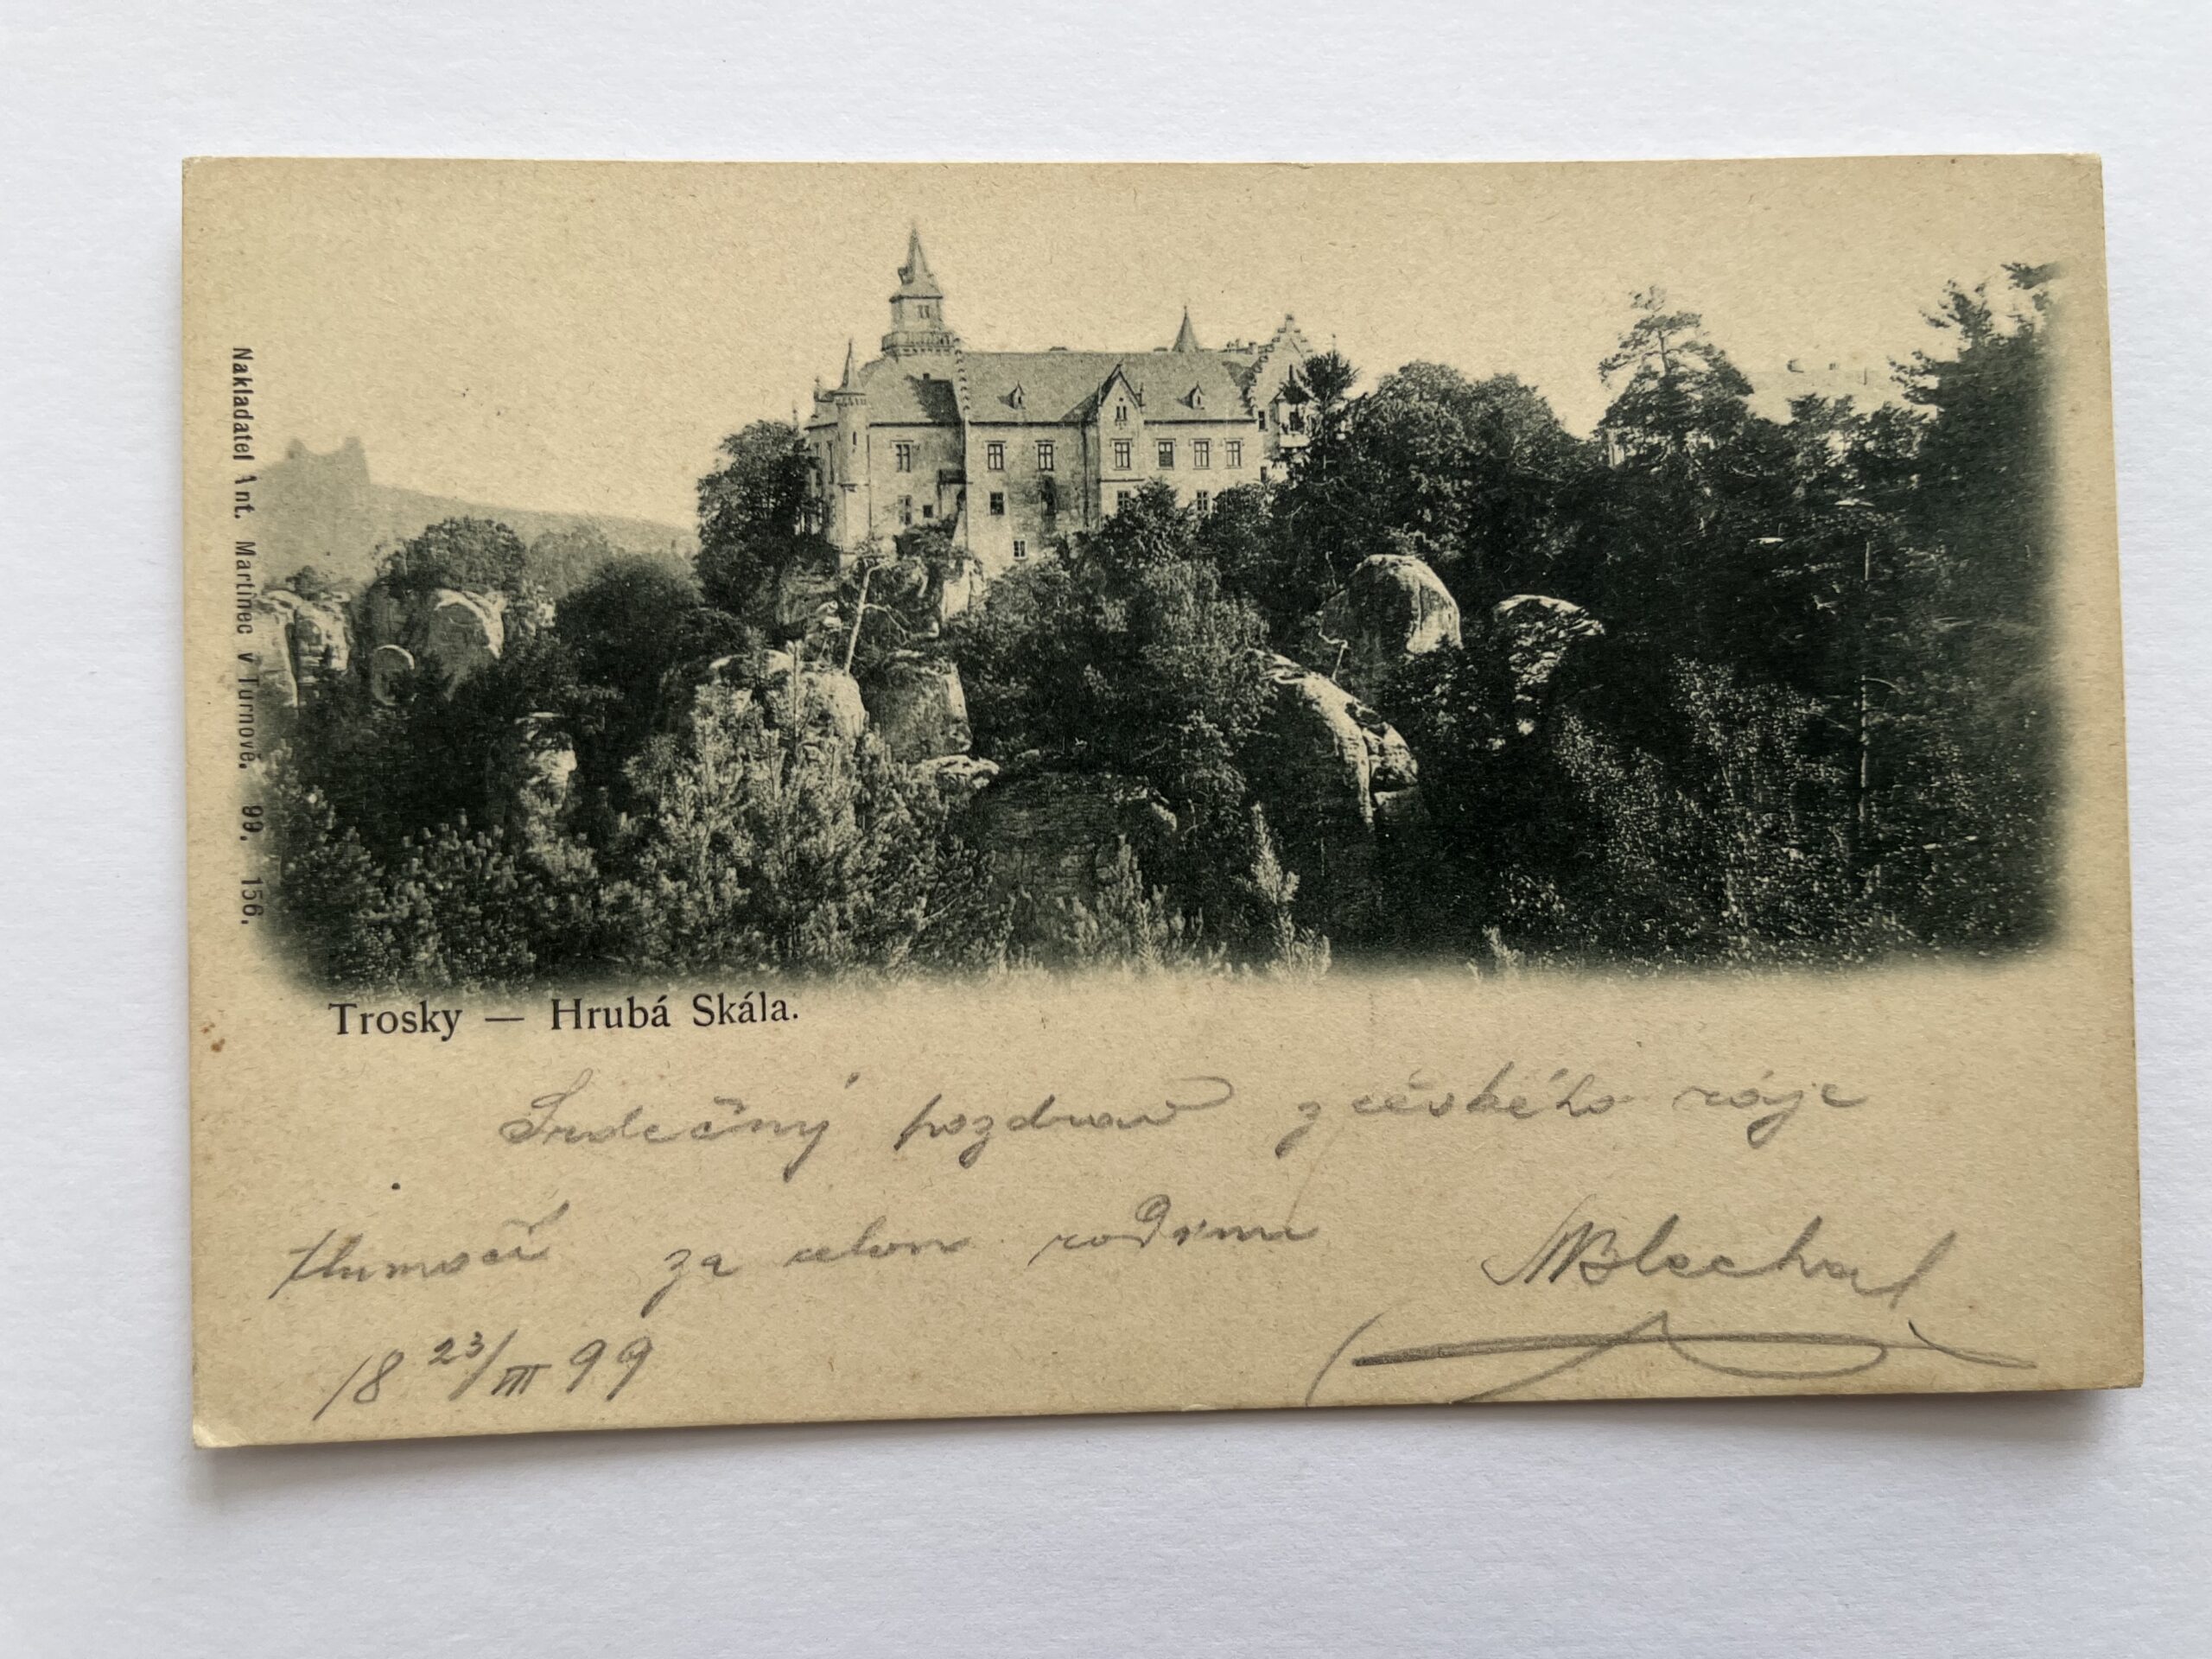 Nakladatel Ant. Martinec v Turnově. 99. 156.
Trosky — Hrubá Skála.
Srdečný pozdrav z českého ráje
tlumočí za celou rodinu MBlechal
18 23/III 99